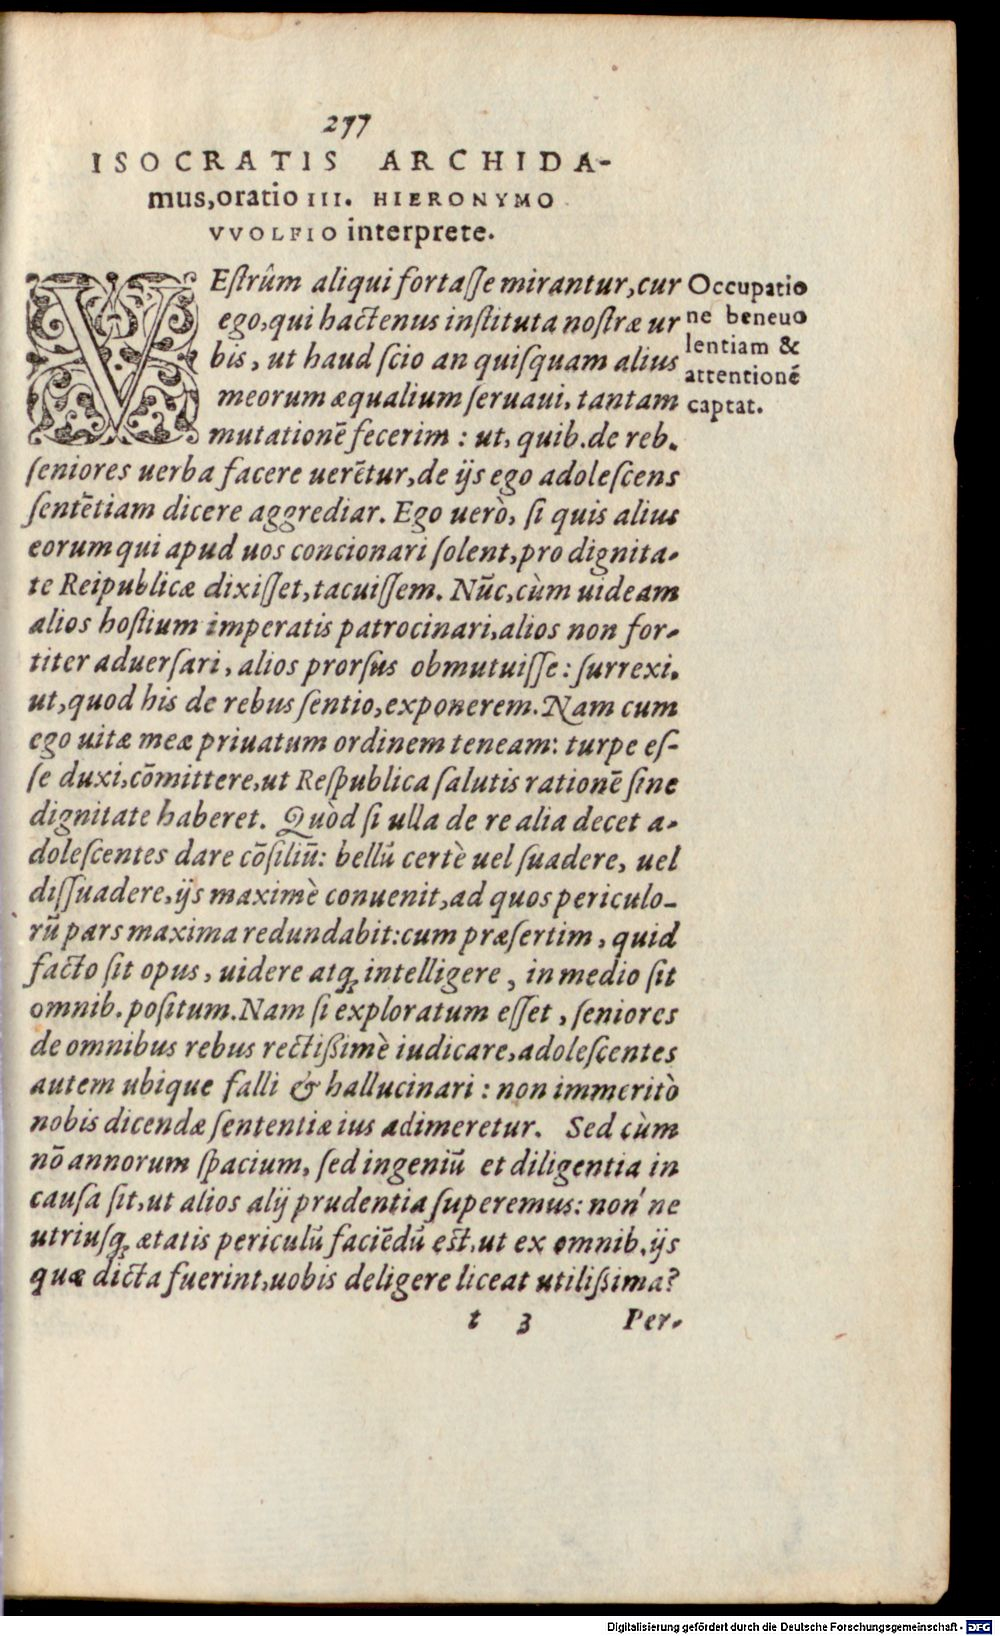 277
ISOCRATIS ARCHIDA-
mus, oratio III. HIERONYMO
VVOLFIO interprete.
VEſtrûm aliqui fortaſſe mirantur, cur
ego, qui hactenus inſtituta noſtræ ur
bis, ut haud ſcio an quiſquam alius
meorum æqualium ſeruaui, tantam
mutationē fecerim : ut, quib. de reb.
ſeniores uerba facere uerētur, de ijs ego adoleſcens
ſentētiam dicere aggrediar. Ego uerò, ſi quis alius
eorum qui apud uos concionari ſolent, pro dignita-
te Reipublicæ dixiſſet, tacuiſſem. Nūc, cùm uideam
alios hoſtium imperatis patrocinari, alios non for-
titer aduerſari, alios prorſus obmutuiſſe : ſurrexi,
ut, quod his de rebus ſentio, exponerem. Nam cum
ego uitæ meæ priuatum ordinem teneam: turpe eſ-
ſe duxi, cōmittere, ut Reſpublica ſalutis rationē ſine
dignitate haberet. Quòd ſi ulla de re alia decet a-
doleſcentes dare cōſiliū: bellū certè uel ſuadere, uel
diſſuadere, ijs maximè conuenit, ad quos periculo-
rū pars maxima redundabit: cum præſertim, quid
facto ſit opus, uidere atq; intelligere, in medio ſit
omnib. poſitum. Nam ſi exploratum eſſet, ſeniores
de omnibus rebus rectißimè iudicare, adoleſcentes
autem ubique falli & hallucinari : non immeritò
nobis dicendæ ſententiæ ius adimeretur. Sed cùm
nō annorum ſpacium, ſed ingeniū et diligentia in
cauſa ſit, ut alios alij prudentia ſuperemus: non' ne
utriuſq; ætatis periculū faciēdū eſt, ut ex omnib. ijs
quæ dicta fuerint, uobis deligere liceat utilißima?
t 3 Per-
Occupatio
ne beneuo
lentiam &
attentionē
captat.
Digitalisierung gefördert durch die Deutsche Forschungsgemeinschaft - DFG